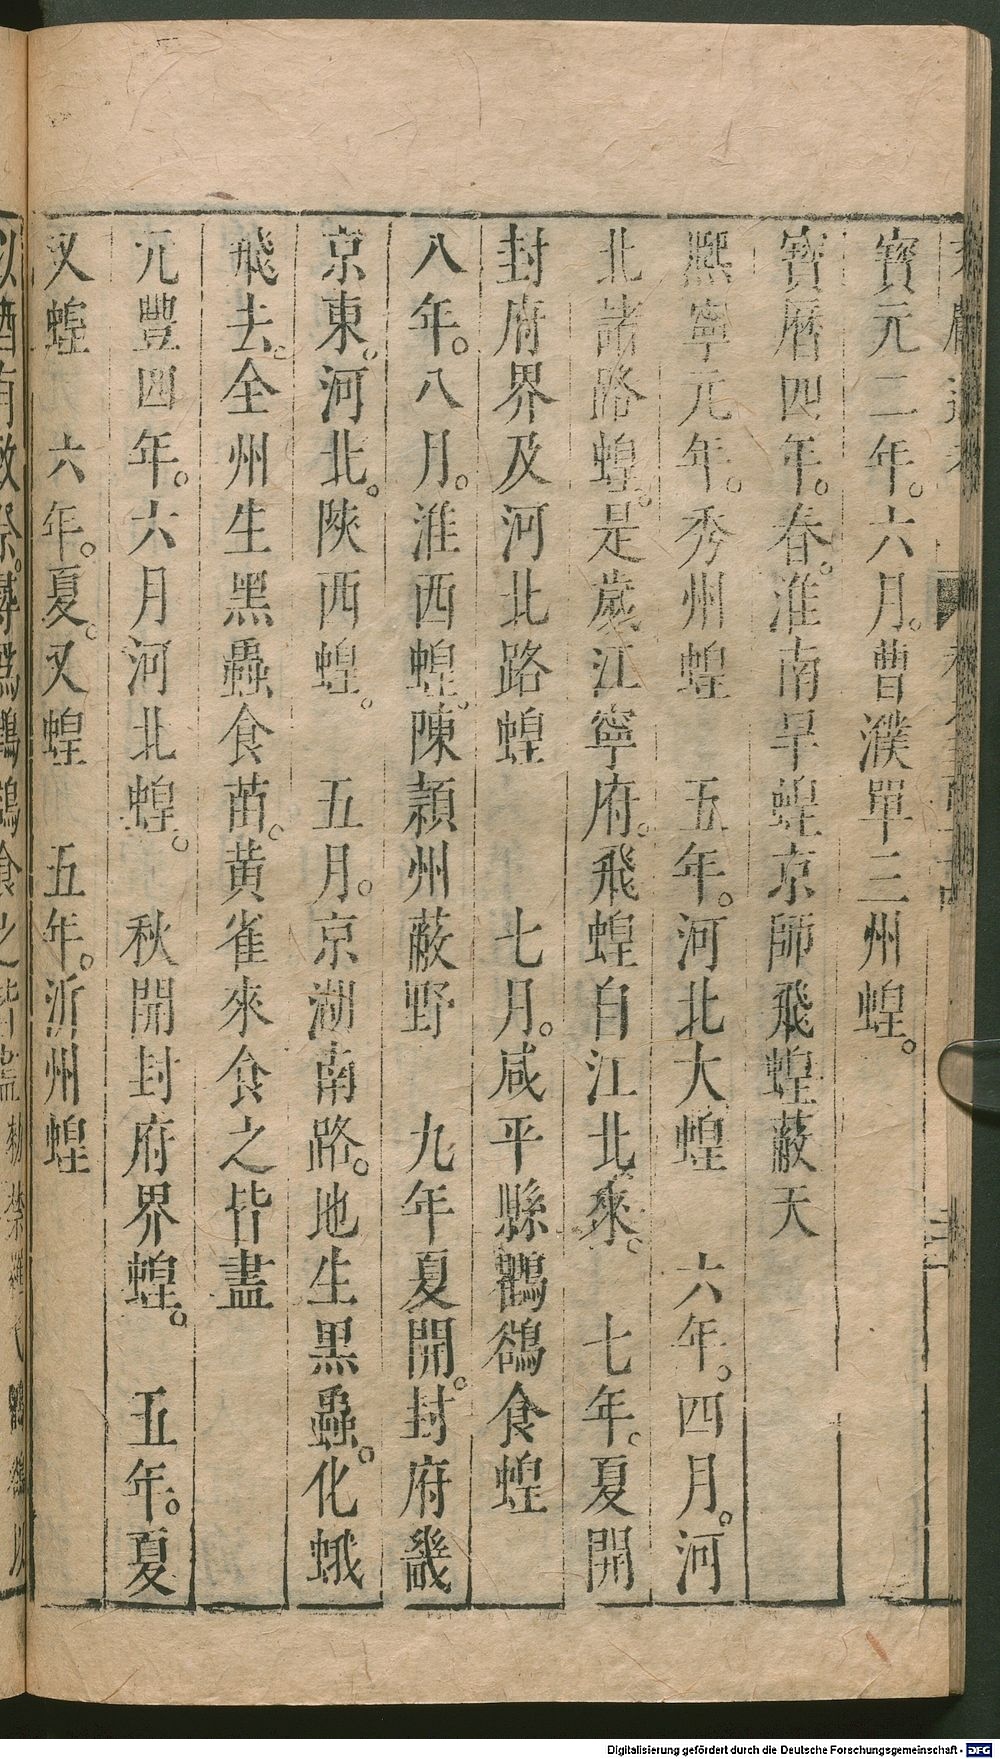 寶元二年。六月。曹濮單三州蝗。
寳曆四年。春。淮南旱蝗京師飛蝗蔽天
熈寧元年。秀州蝗　五年。河北大蝗　六年。四月。河
北諸路蝗。是歲江寧府。飛蝗自江北來。　七年。夏開
封府界及河北路蝗　七月。咸平縣鸜鵒食蝗
八年。八月。淮西蝗。陳頴州蔽野　九年夏開。封府畿
京東。河北。陜西蝗。　五月。京湖南路。地生黑蟲。化蛾
飛去。全州生黑蟲食苗。黄雀來食之皆盡
元豐四年。六月河北蝗。　秋開封府界蝗。　五年。夏
又蝗　六年。夏。又蝗　五年。沂州蝗
Digitalisierung gefördert durch die Deutsche Forschungsgemeinschaft - DFG